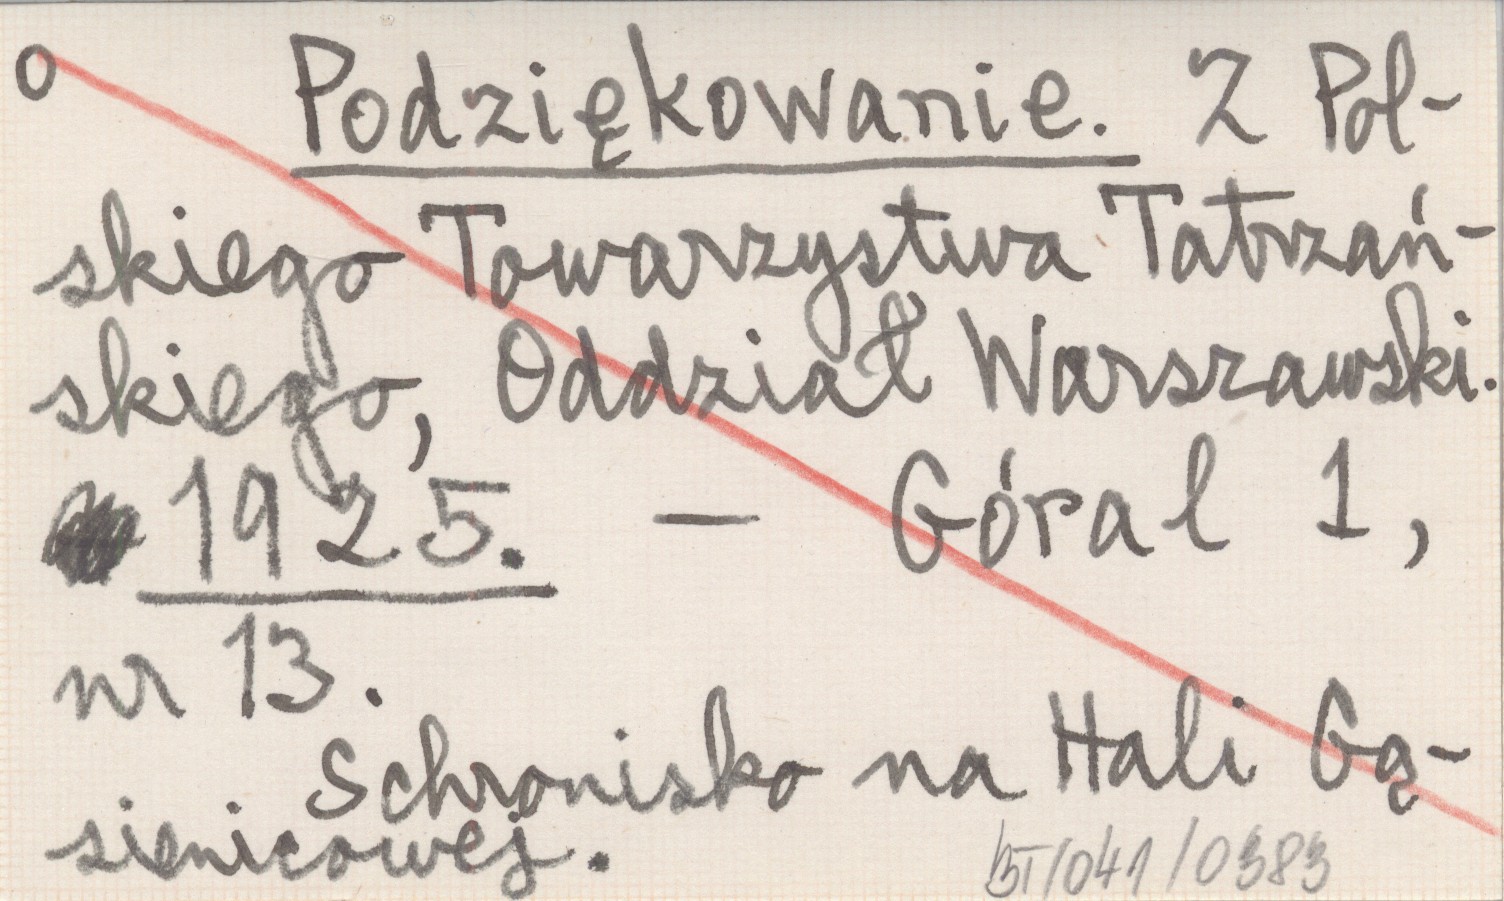 o Podziękowanie. Z Pol-
skiego Towarzystwa Tatrzań-
skiego, Oddział Warszawski.
1925. — Góral 1,
nr 13.
Schronisko na Hali Gą-
sienicowej.
BT/041/0383